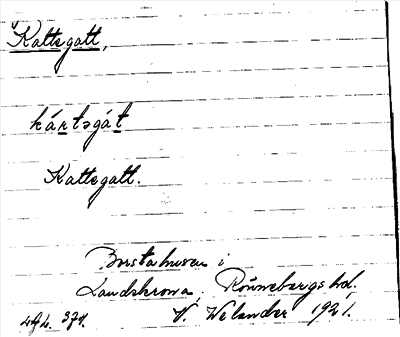 Kattegatt,
kártsgát
Kattegatt.
Borstahusen i
Landskrona, Rönnebergs hd.
V. Welander 1921.